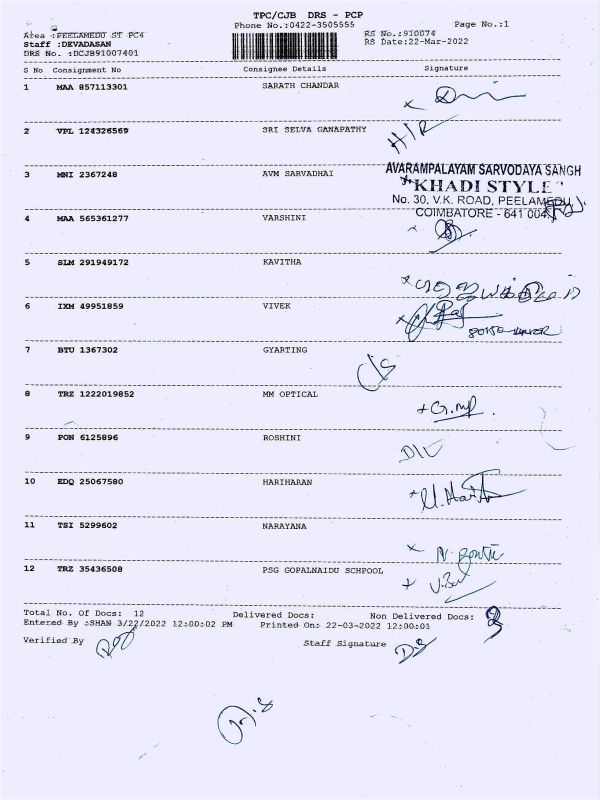 TPC/CJB DRS - PCP
Phone No.:0422-3505555
Page No.:1
Area :PEELAMEDU ST PC4
RS No.:910074
Staff :DEVADASAN
RS Date:22-Mar-2022
DRS No. :DCJB91007401
S No Consignment No Consignee Details Signature
1 MAA 857113301 SARATH CHANDAR
2 VPL 124326569 SRI SELVA GANAPATHY
3 MNI 2367248 AVM SARVADHAI
AVARAMPALAYAM SARVODAYA SANGH
"KHADI STYLE"
No. 30, V.K. ROAD, PEELAMEDU,
COIMBATORE - 641 004.
4 MAA 565361277 VARSHINI
5 SLM 291949172 KAVITHA
6 IXM 49951859 VIVEK
7 BTU 1367302 GYARTING
8 TRZ 1222019852 MM OPTICAL
9 PON 6125896 ROSHINI
10 EDQ 25067580 HARIHARAN
11 TSI 5299602 NARAYANA
12 TRZ 35436508 PSG GOPALNAIDU SCHPOOL
Total No. Of Docs: 12 Delivered Docs: Non Delivered Docs:
Entered By :SHAN 3/22/2022 12:00:02 PM Printed On: 22-03-2022 12:00:01
Verified By Staff Signature